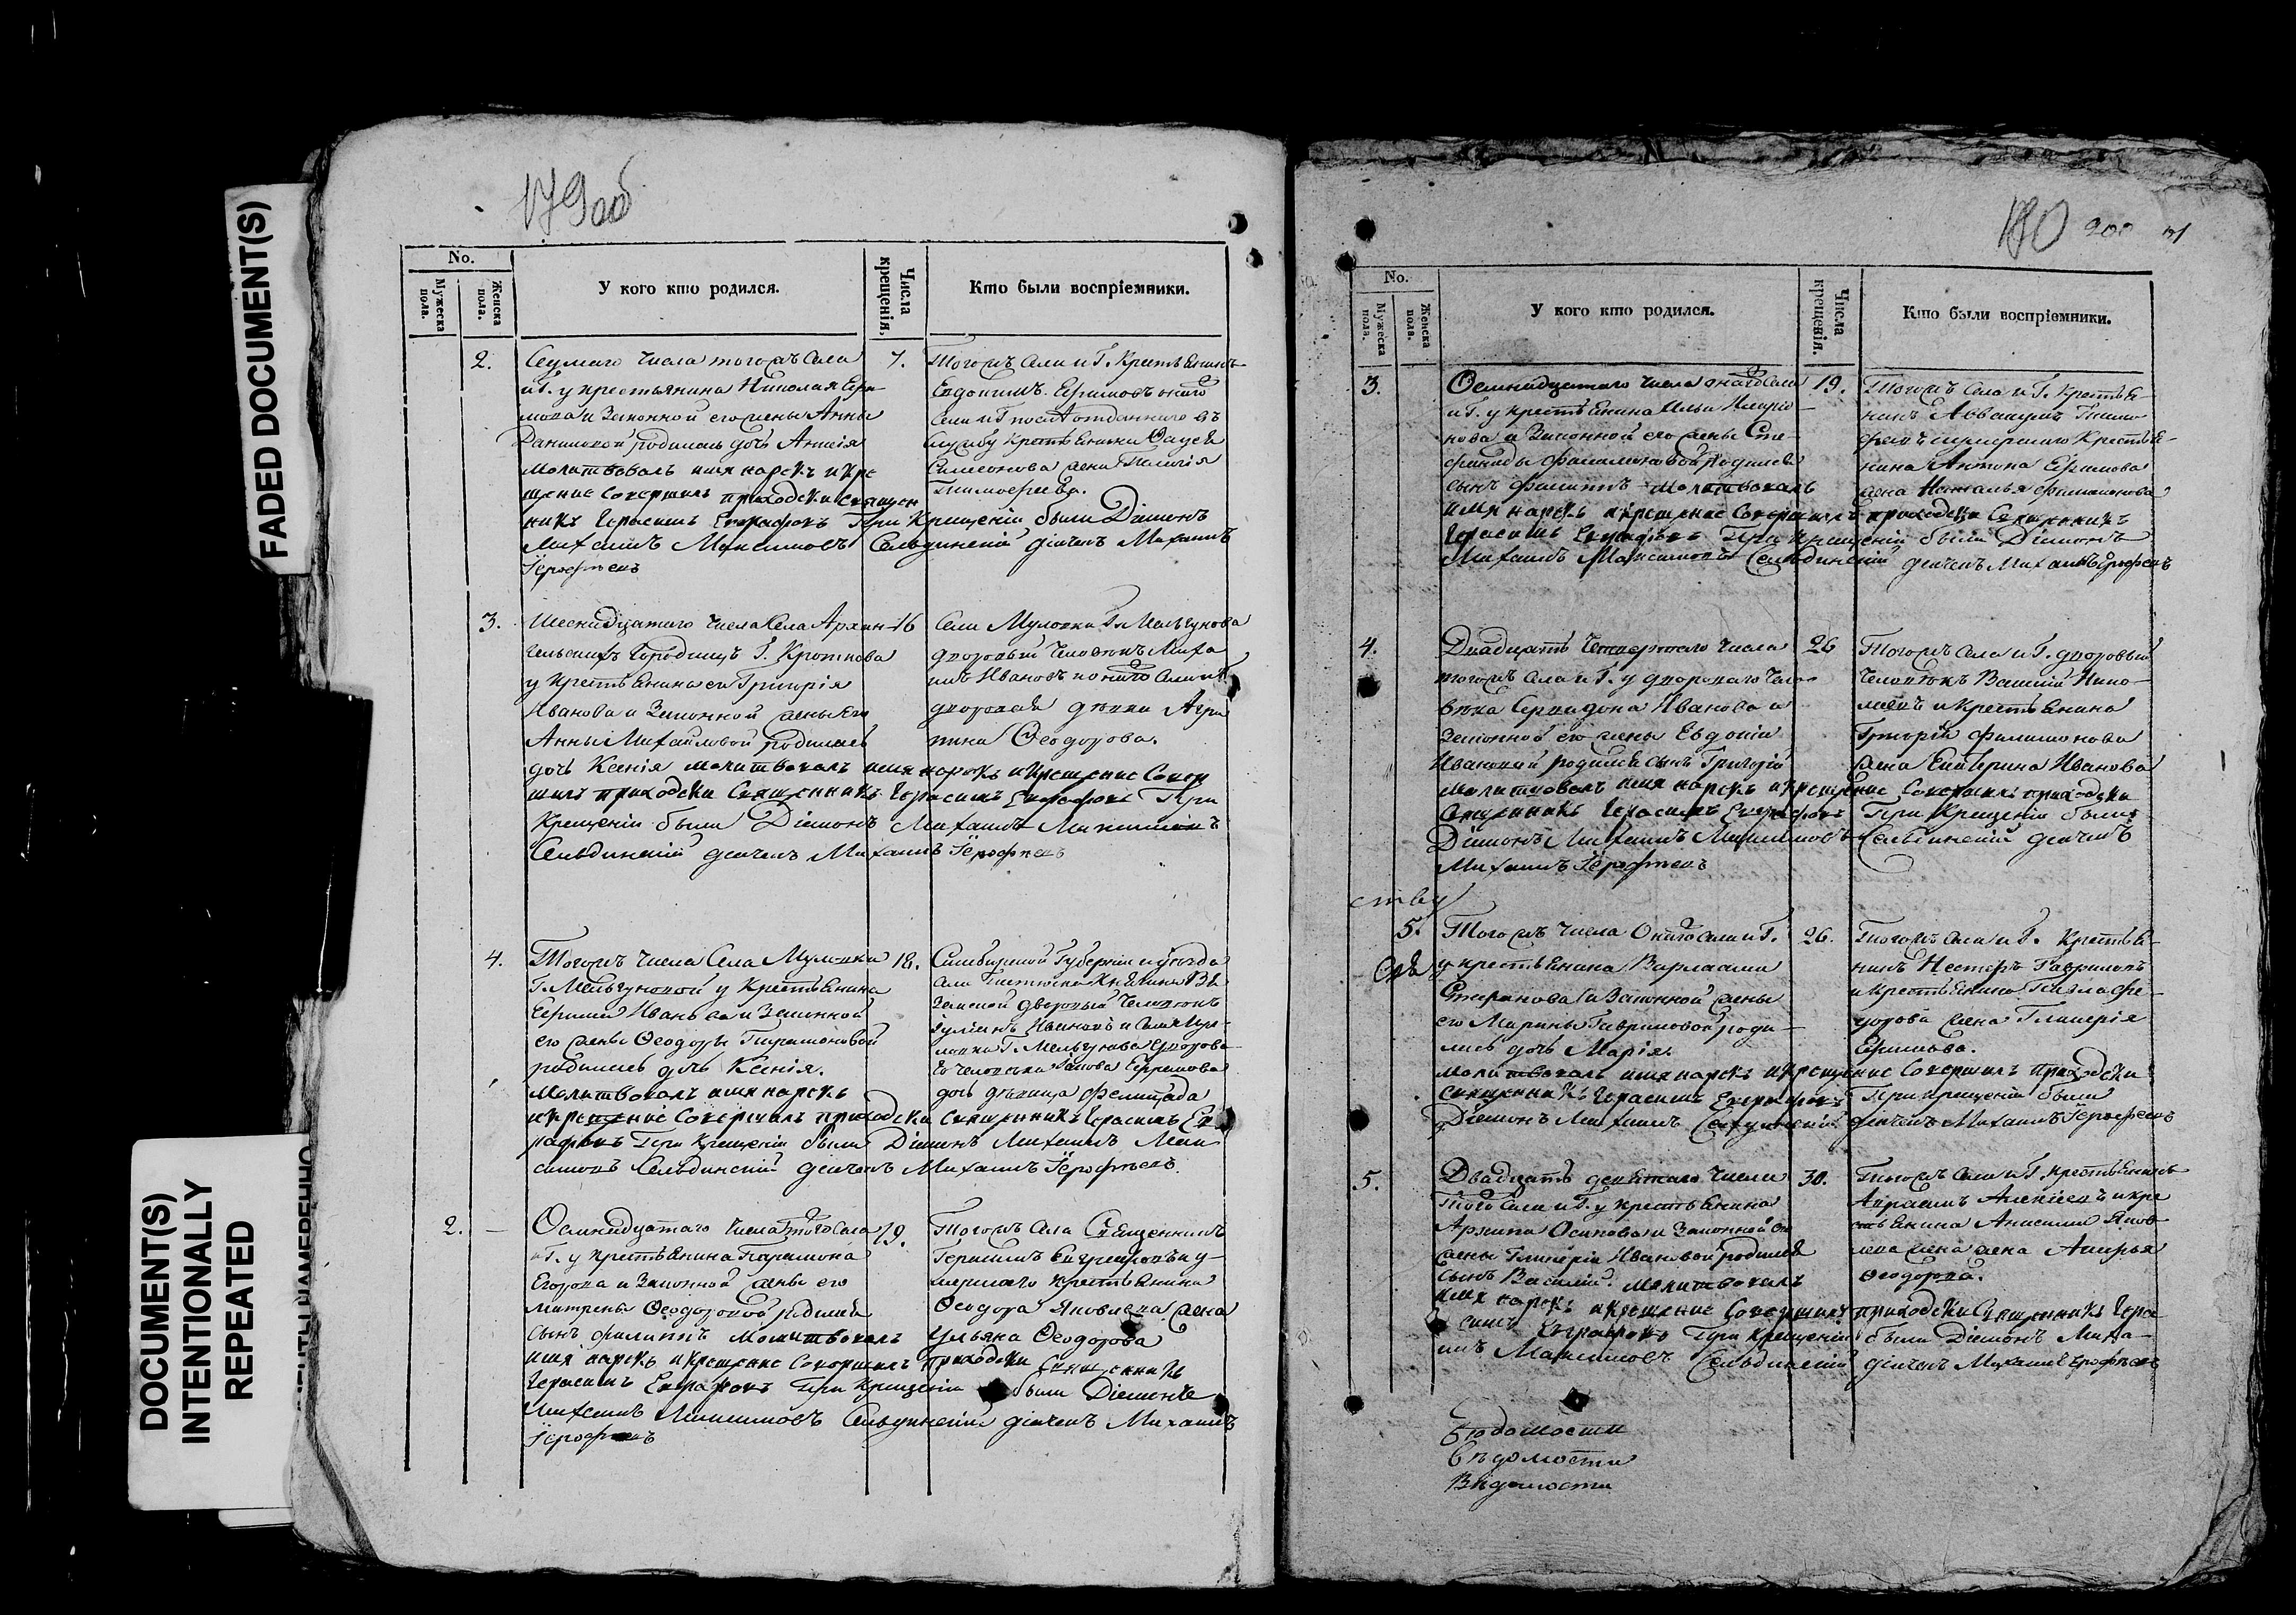 FADED DOCUMENT(S)
DOCUMENT(S)
INTENTIONALLY
REPEATED
179об
No.
Мужеска пола.
Женска пола.
У кого кто родился.
Числа крещенія.
Кто были воспріемники.
2.
Седмаго числа тогожъ села
и Г. у крестьянина Николая Ефи-
мова и законной его жены Анны
Даниловой родилась дочь Анисія
молитвовалъ имя нарекъ и кре
щение совершилъ приходски священ
никъ Герасимъ Евграфовъ При Крещеніи были Діаконъ
Михаилъ Максимовъ Сельдинскій дьячекъ Михаилъ
Іерофѣевъ
7.
Тогожъ села и Г. Крестьянинъ
Евдокимъ Ефимовъ онаго
села и Г после отданнаго въ
службу крестьянина
Симеонова жена Пелагія
Тимофеева.
3.
Шеснадцатаго числа села Архан-
гельскихъ Городищъ Г. Кроткова
у крестьянина его Григорія
Иванова и законной жены его
Анны Михайловой родилась
дочь Ксенія молитвовалъ имя нарекъ и Крещение совер
шилъ приходски священникъ Герасимъ Евграфовъ При
Крещеніи были Діаконъ Михаилъ Максимовъ
Сельдинскій дьячекъ Михаилъ Іерофѣевъ
16
села Муловки Г. Мельгунова
дворовый человекъ Миха
илъ Ивановъ и онаго села и Г
дворовая девка Агри
пина Феодорова.
4.
Тогожъ числа села Муловки
Г. Мельгуновой у крестьянина
Ефима Иванова и законной
его жены Феодоры Парамоновой
родилась дочь Ксенія.
молитвовалъ имя нарекъ
и крещение совершилъ приходски священникъ Герасимъ Ев
рафовъ При Крещеніи были Діаконъ Михаилъ Мак
симовъ Сельдинскій дьячекъ Михаилъ Іерофѣевъ.
18.
Симбирской Губерніи и уѣзда
села Княжны Вя
земской дворовый человекъ
Іуліанъ Ивановъ и села Му-
ловки Г. Мельгунова дворова-
го человека Ефремова
дочь девица Фелицада
2.
Осмнадцатаго числа того села
и Г. у крестьянина Парамона
Егорова и законной жены его
Матрены Феодоровой родился
сынъ Филиппъ молитвовалъ
имя нарекъ и крещение совершилъ приходски священникъ
Герасимъ Евграфовъ При Крещеніи были Діаконъ
Михаилъ Максимовъ Сельдинскій дьячекъ Михаилъ
Іерофеевъ
19.
Тогожъ села Священникъ
Герасимъ Евграфовъ и у-
мершаго крестьянина
Феодора Яковлева жена
Ульяна Феодорова
180
200
No.
Мужеска пола.
Женска пола.
У кого кто родился.
Числа крещенія.
Кто были воспріемники.
3.
Осмнадцатаго числа онаго села
и Г. у крестьянина Ильи Иларіо-
нова и законной его жены Сте-
фаниды Филимоновой родился
сынъ Филиппъ молитвовалъ
имя нарекъ и крещение совершилъ приходски священникъ
Герасимъ Евграфовъ При Крещеніи были Діаконъ
Михаилъ Максимовъ Сельдинскій дьячекъ Михаилъ Іерофеевъ
19.
Тогожъ села и Г. крестья-
нинъ Аввакумъ Тимо-
феевъ и умершаго крестья-
нина Антона Ефимова
жена Наталья Филимонова
4.
Двадцать четвертаго числа
тогожъ села и Г. у двороваго чело-
века Спиридона Иванова и
законной его жены Евдокіи
Ивановой родился сынъ Григорій
молитвовалъ имя нарекъ и крещение совершилъ приходски
священникъ Герасимъ Евграфовъ При Крещеніи были
Діаконъ Михаилъ Максимовъ Сельдинскій дьячекъ
Михаилъ Іерофѣевъ
26
Тогожъ села и Г. дворовый
человекъ Василій Нико-
лаевъ и крестьянина
Григорія Филимонова
жена Екатерина Иванова
ству
5.
Тогожъ числа онаго села и Г.
у крестьянина Варлаама
и законной жены
его Марины Гавриловой роди-
лась дочь Марія.
молитвовалъ имя нарекъ и крещение совершилъ приходски
священникъ Герасимъ Евграфовъ При крещеніи были
Діаконъ Михаилъ Сельдинскій дьячекъ Михаилъ Іерофеевъ
26.
Тогожъ села и Г. крестья-
нинъ Несторъ Гавриловъ
и крестьянина Павла Фе-
дорова жена Гликерія
Ефимова.
5.
Двадцать девятаго числа
того села и Г. у крестьянина
Архипа Осипова и законной его
жены Гликеріи Ивановой родился
сынъ Василій. молитвовалъ
имя нарекъ и крещение совершилъ приходски священникъ Гера
симъ Евграфовъ При Крещеніи были Діаконъ Миха-
илъ Максимовъ Сельдинскій дьячекъ Михаилъ Ерофѣевъ
30.
Тогожъ села и Г. крестьянинъ
Авраамъ Алексеевъ и кре
стьянина Анисима Яков-
лева жена жена Марья
Феодорова.
Вѣдомости
Вѣдомости
Вѣдомости